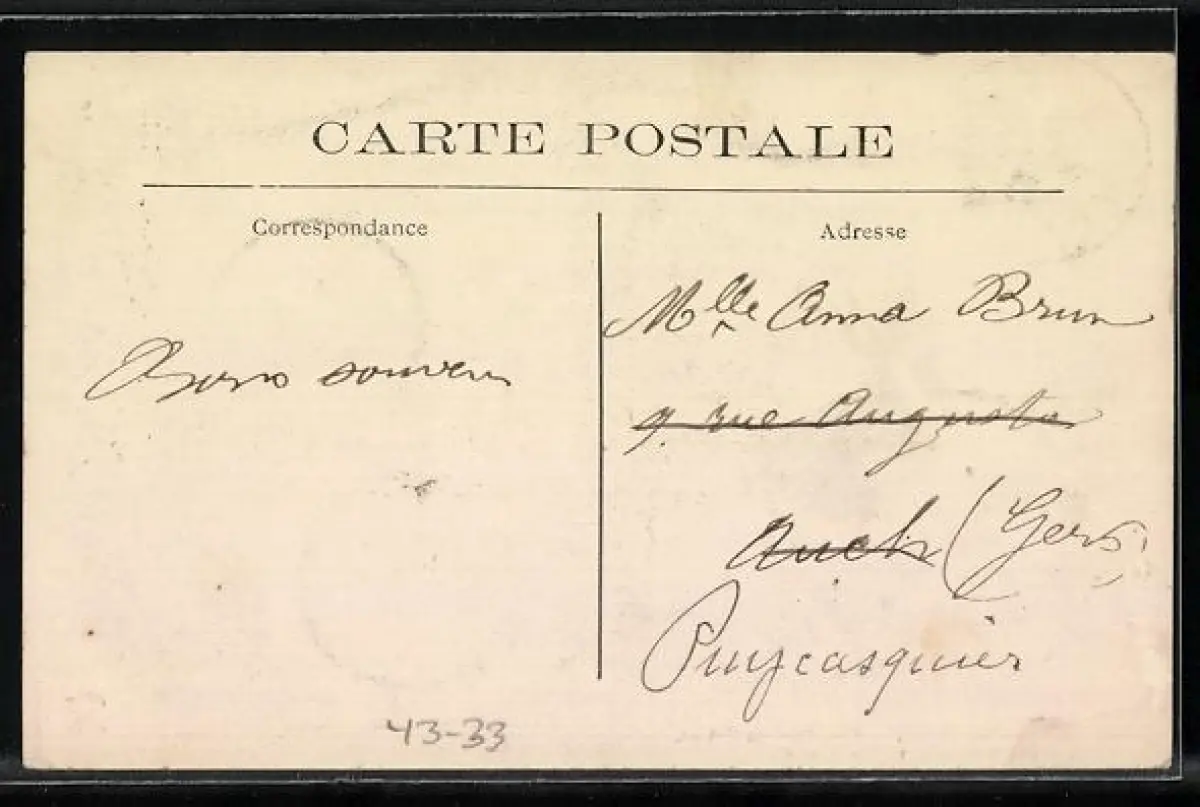 CARTE POSTALE
Correspondance
Adresse
Bons souvenirs
Mlle Anna Brun
9 rue Augusta
Auch (Gers)
Puycasquier
43-33